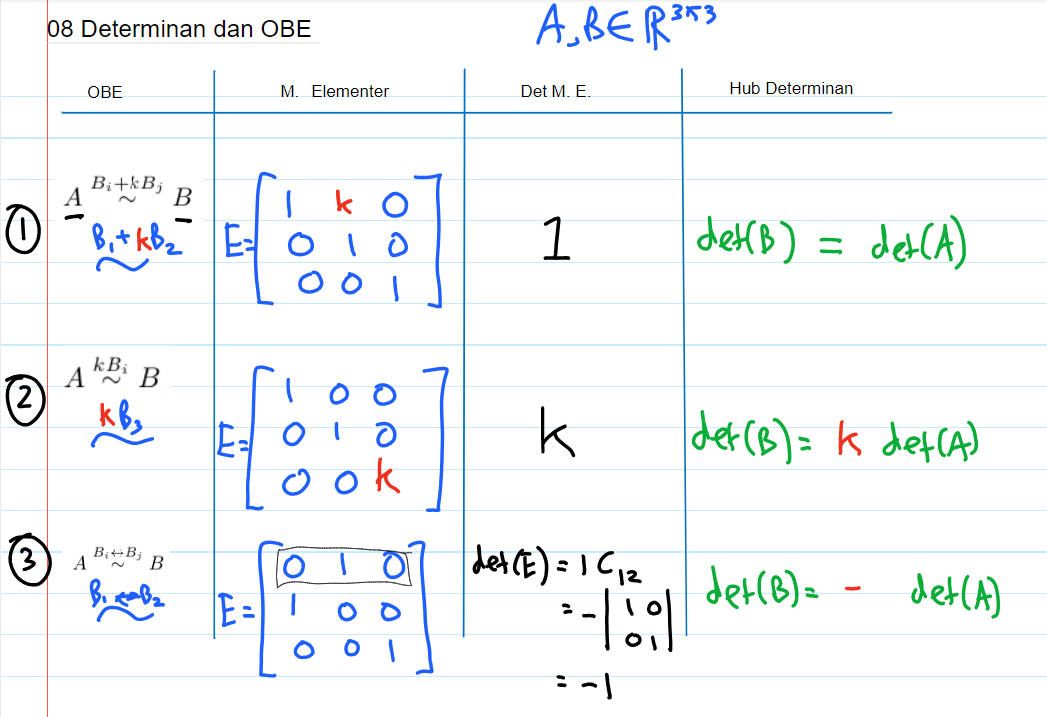 08 Determinan dan OBE
A, B ∈ ℝ³ˣ³
OBE M. Elementer Det M. E. Hub Determinan
① A ~ B (Bᵢ+kBⱼ)
B₁ + kB₂
E = [1 k 0
0 1 0
0 0 1]
1
det(B) = det(A)
② A ~ B (kBᵢ)
kB₃
E = [1 0 0
0 1 0
0 0 k]
k
det(B) = k det(A)
③ A ~ B (Bᵢ↔Bⱼ)
B₁ ↔ B₂
E = [0 1 0
1 0 0
0 0 1]
det(E) = 1 C₁₂
= - |1 0
0 1|
= -1
det(B) = - det(A)